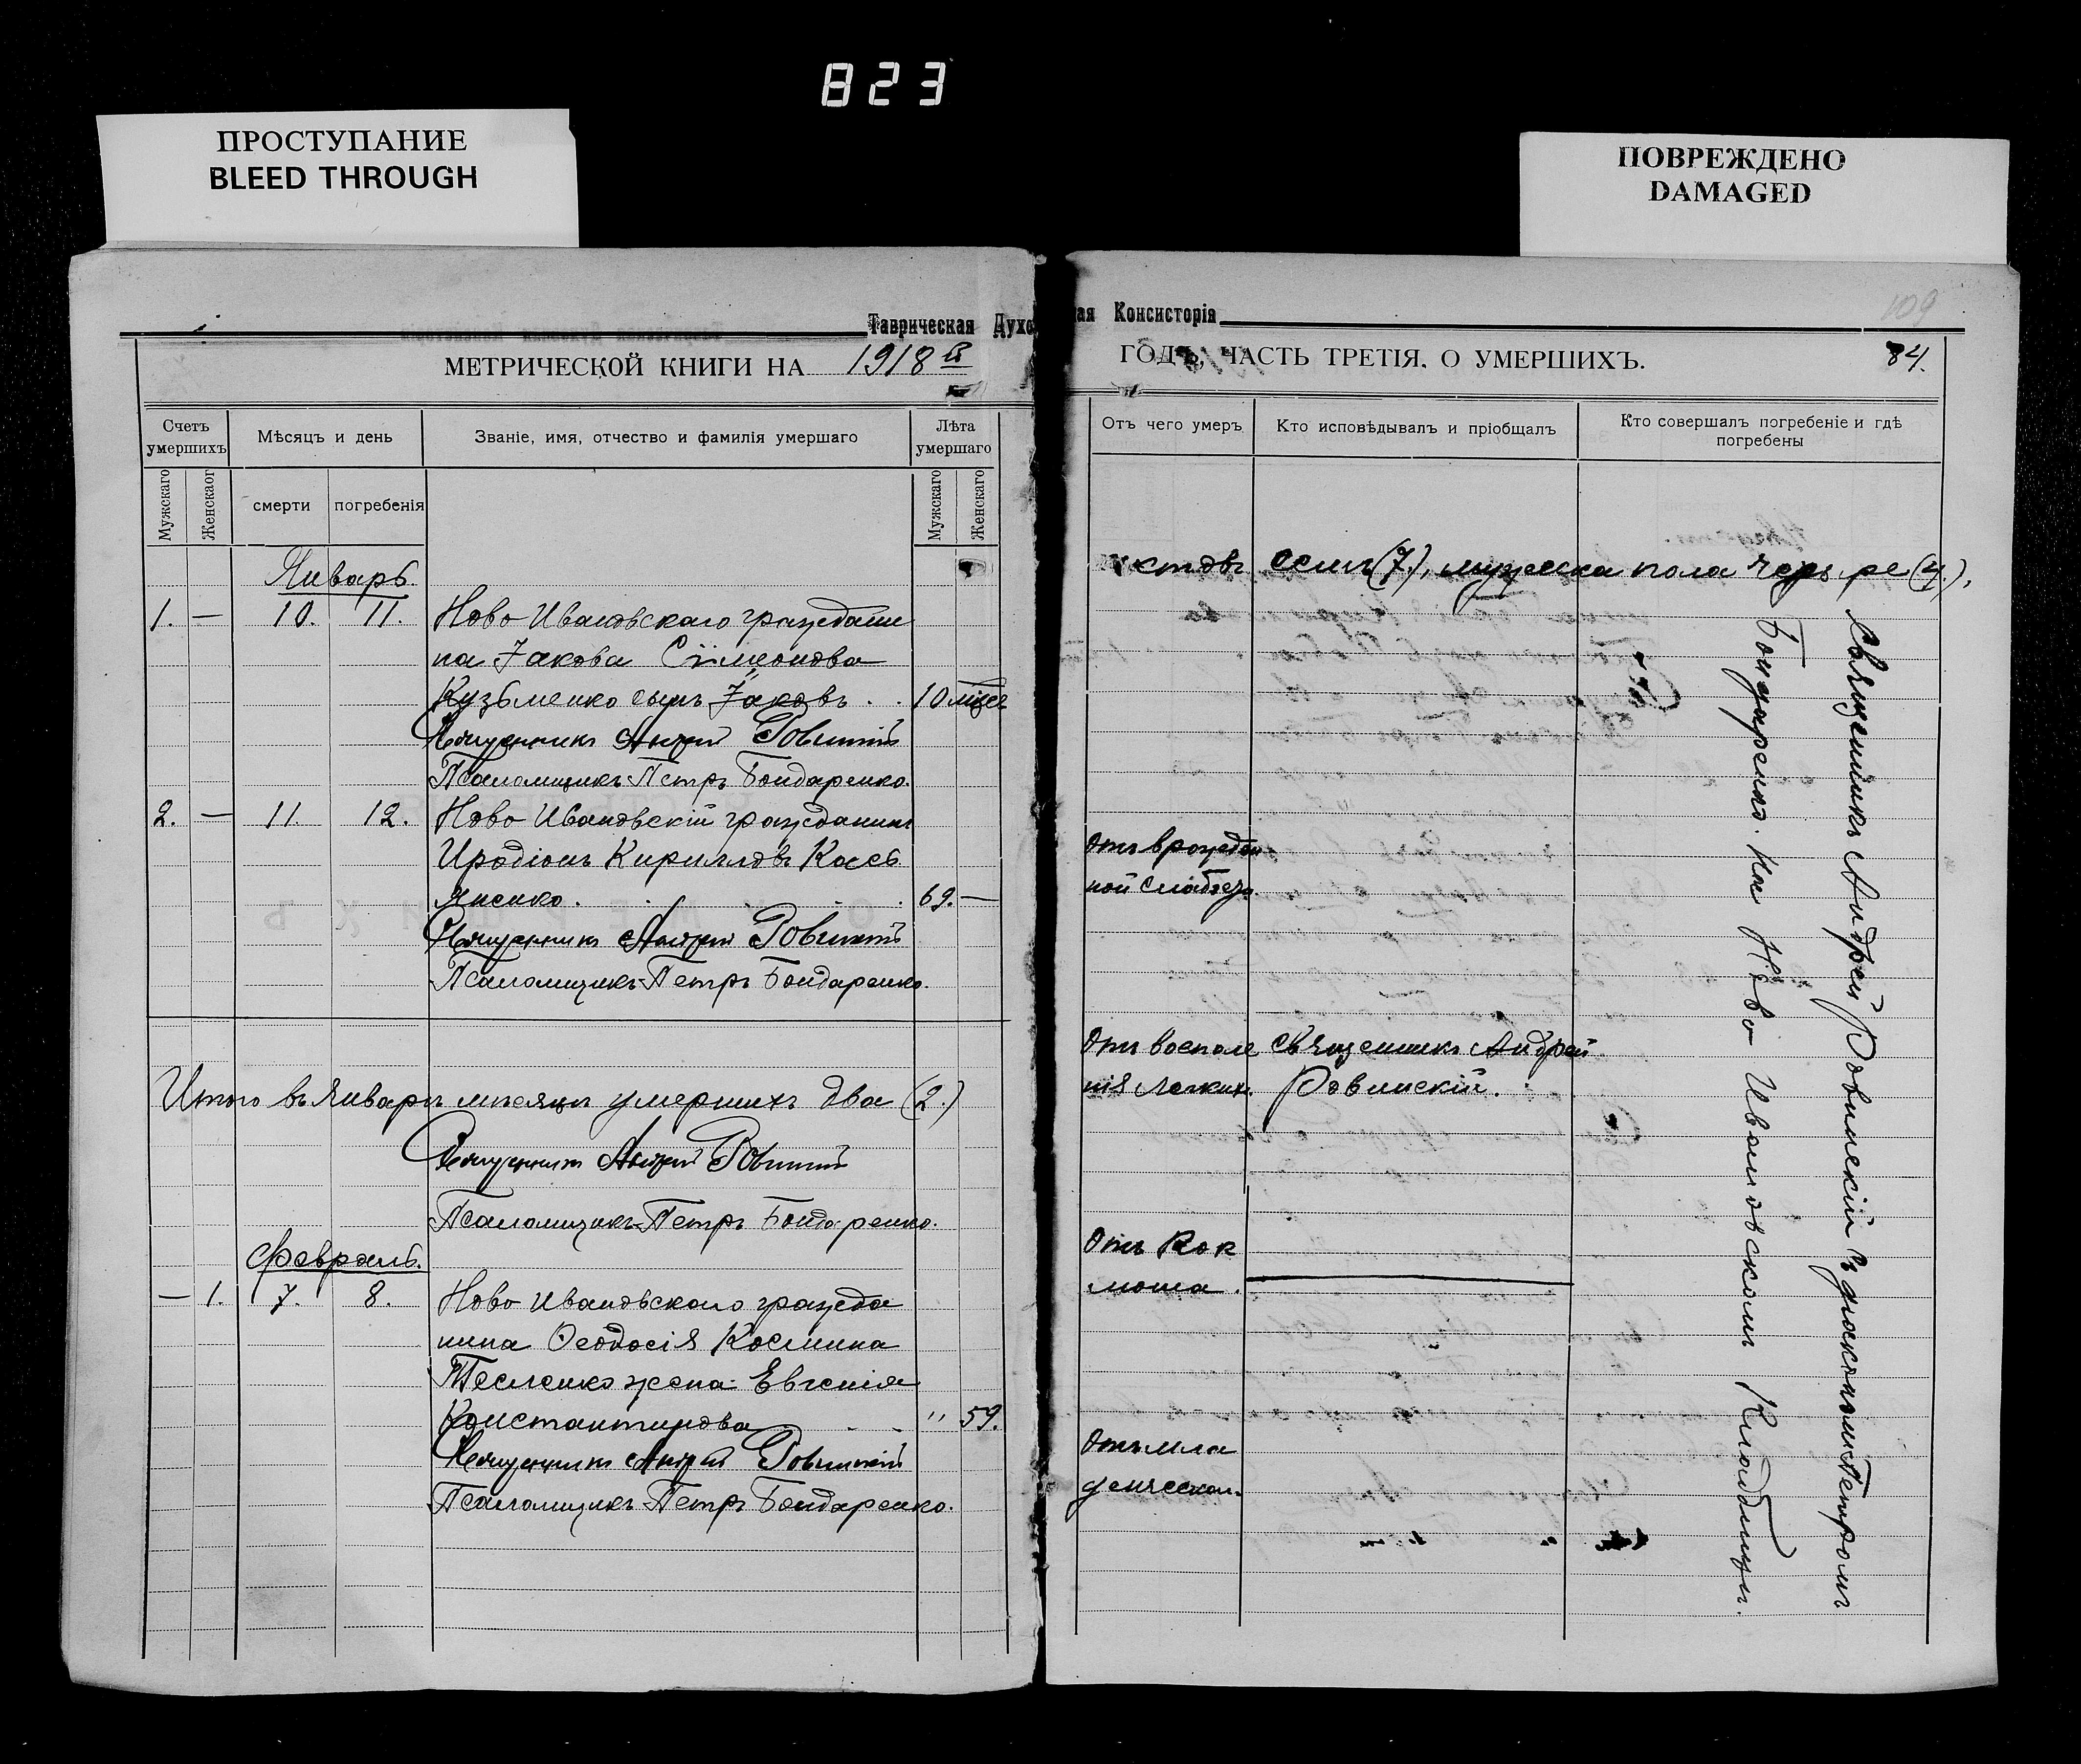 823
ПРОСТУПАНИЕ
BLEED THROUGH
ПОВРЕЖДЕНО
DAMAGED
Таврическая Духо
МЕТРИЧЕСКОЙ КНИГИ НА 1918 й
Счетъ умершихъ
Мѣсяцъ и день
Званіе, имя, отчество и фамилія умершаго
Лѣта умершаго
Мужскаго
Женскаог
смерти
погребенія
Мужскаго
Женскаго
Январь
1. — 10. 11. Ново Ивановскаго граждани
на Іакова Сѵмеонова
Кузьменко сынъ Іаковъ . . 10 мцев
Священникъ Андрей Ровинскій
Псаломщикъ Петръ Бондаренко.
2. — 11. 12. Ново Ивановскій гражданинъ
Иродіонъ Кирилловъ Кась
яненко . . . . 69. —
Священникъ Андрей Ровинскій
Псаломщикъ Петръ Бондаренко.
Итого въ Январѣ мѣсяцѣ умершихъ два (2.)
Священникъ Андрей Ровинскій
Псаломщикъ Петръ Бондаренко.
Февраль.
— 1. 7. 8. Ново Ивановскаго гражда
нина Ѳеодосія Космина
Тесленко жена Евгенія
Константинова . . " 59.
Священникъ Андрей Ровинскій
Псаломщикъ Петръ Бондаренко.
ая Консисторія
109
ГОДЪ, ЧАСТЬ ТРЕТІЯ, О УМЕРШИХЪ.
84.
Отъ чего умеръ
Кто исповѣдывалъ и пріобщалъ
Кто совершалъ погребеніе и гдѣ погребены
ктовъ семь (7.), мужеска пола (4.),
Отъ врожден
ной слабости.
Отъ воспале Священникъ Андрей
нія легкихъ. Ровинскій.
Отъ кок
люша.
Отъ мла
денческой.
Священникъ Андрей Ровинскій съ діакономъ Петромъ
Бондаренко. На Ново Ивановскомъ Кладбищѣ.